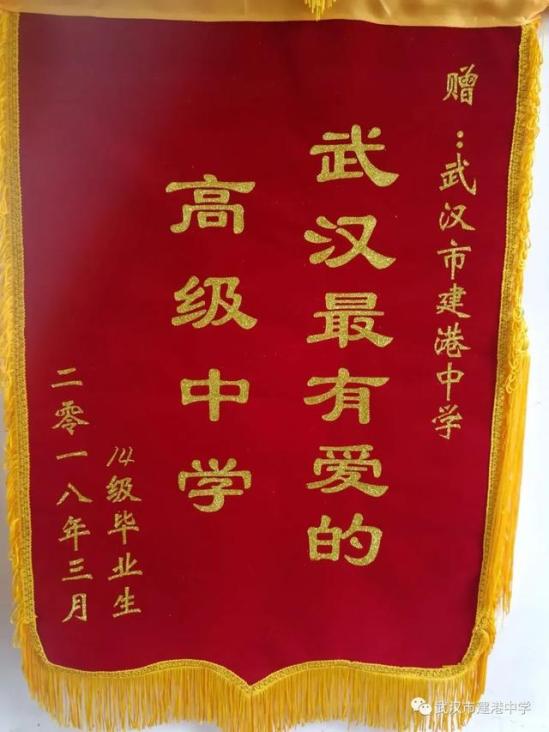 赠：武汉市建港中学
武汉最有爱的
高级中学
14级毕业生
二零一八年三月
武汉市建港中学